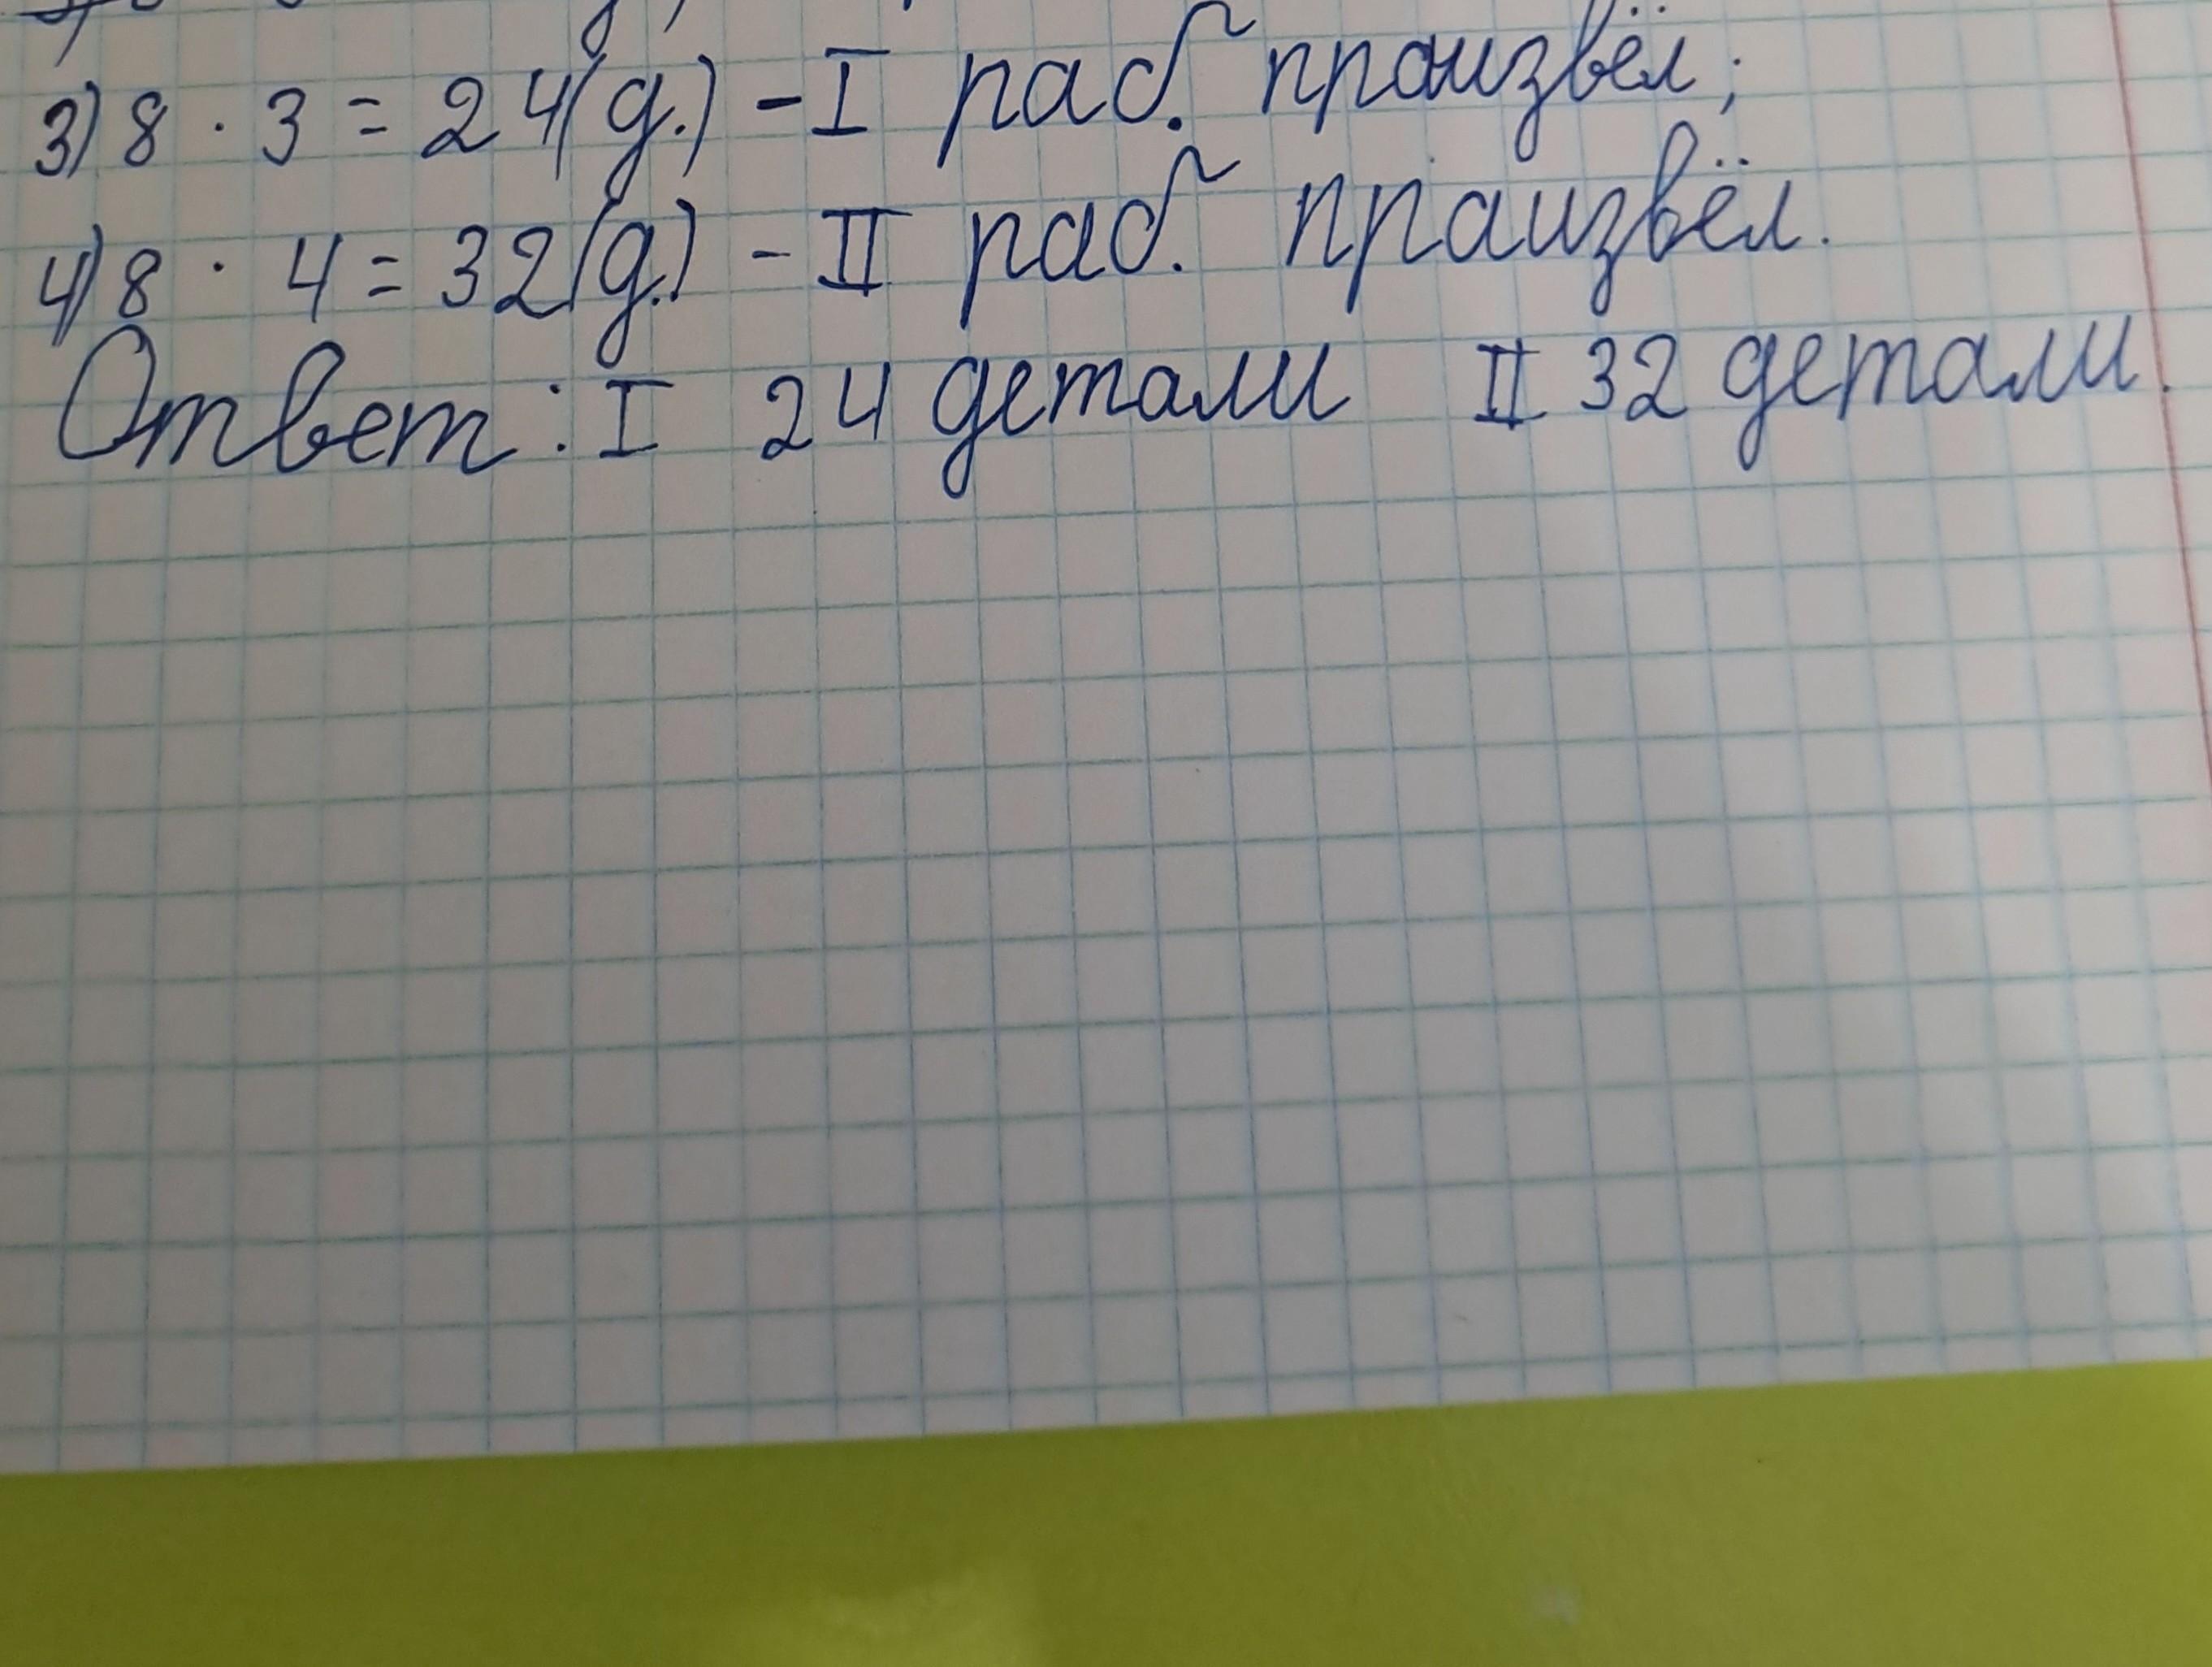 3) 8 · 3 = 24(д.) - I раб. произвёл;
4) 8 · 4 = 32(д.) - II раб. праизвёл.
Ответ: I 24 детали II 32 детали.